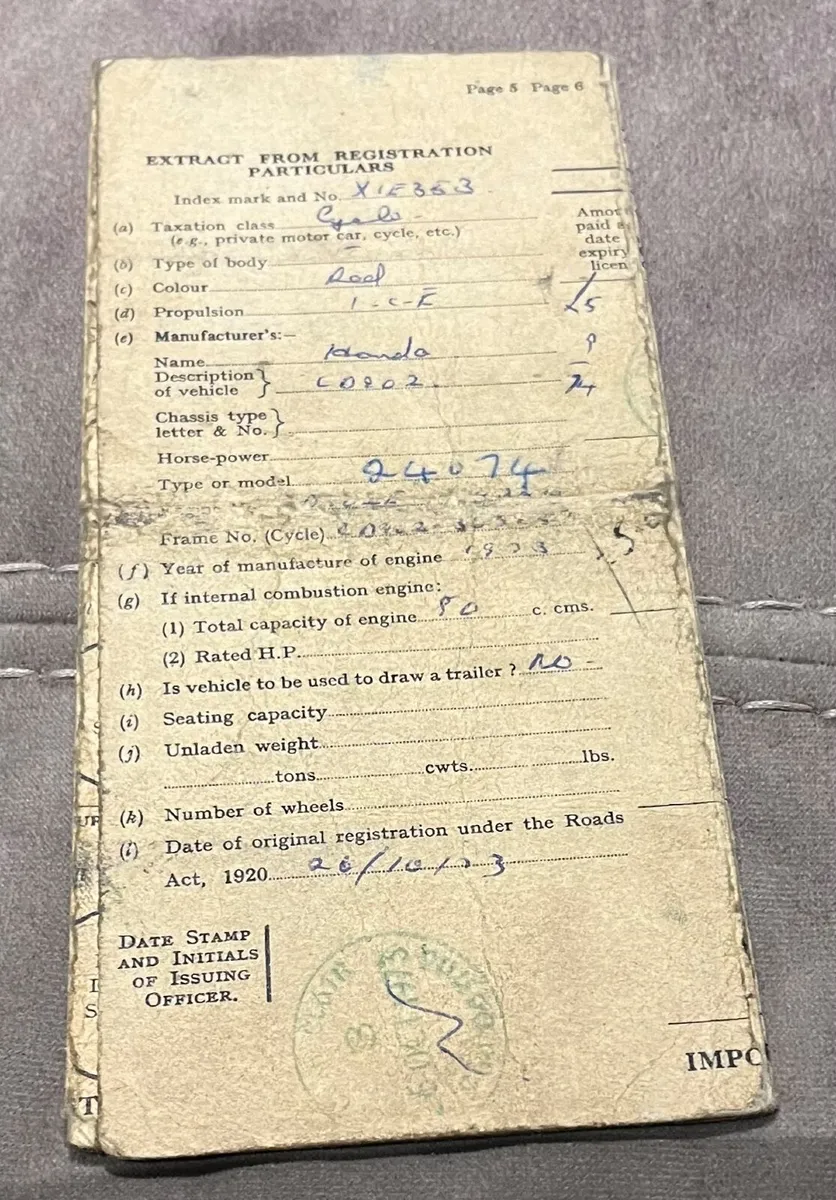 Page 5 Page 6
EXTRACT FROM REGISTRATION
PARTICULARS
Index mark and No. XIE353
(a) Taxation class Cycle
(e.g., private motor car, cycle, etc.)
(b) Type of body
(c) Colour Red
(d) Propulsion I-C-E
(e) Manufacturer's:—
Name Honda
Description of vehicle
Chassis type letter & No.
Horse-power
Type or model 24074
Frame No. (Cycle)
(f) Year of manufacture of engine 1973
(g) If internal combustion engine:
(1) Total capacity of engine 90 c. cms.
(2) Rated H.P.
(h) Is vehicle to be used to draw a trailer ? NO
(i) Seating capacity
(j) Unladen weight
tons cwts. lbs.
(k) Number of wheels
(l) Date of original registration under the Roads
Act, 1920
DATE STAMP
AND INITIALS
OF ISSUING
OFFICER.
Amo
paid a
date
expiry
licen
IMPO